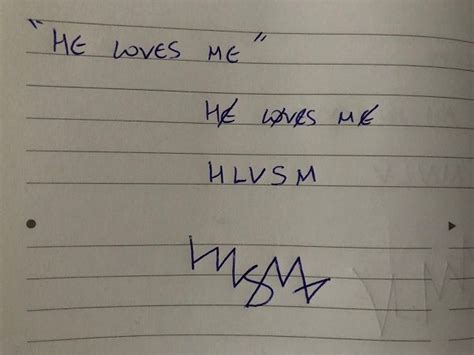 "HE LOVES ME"
HE LOVES ME
HLVSM